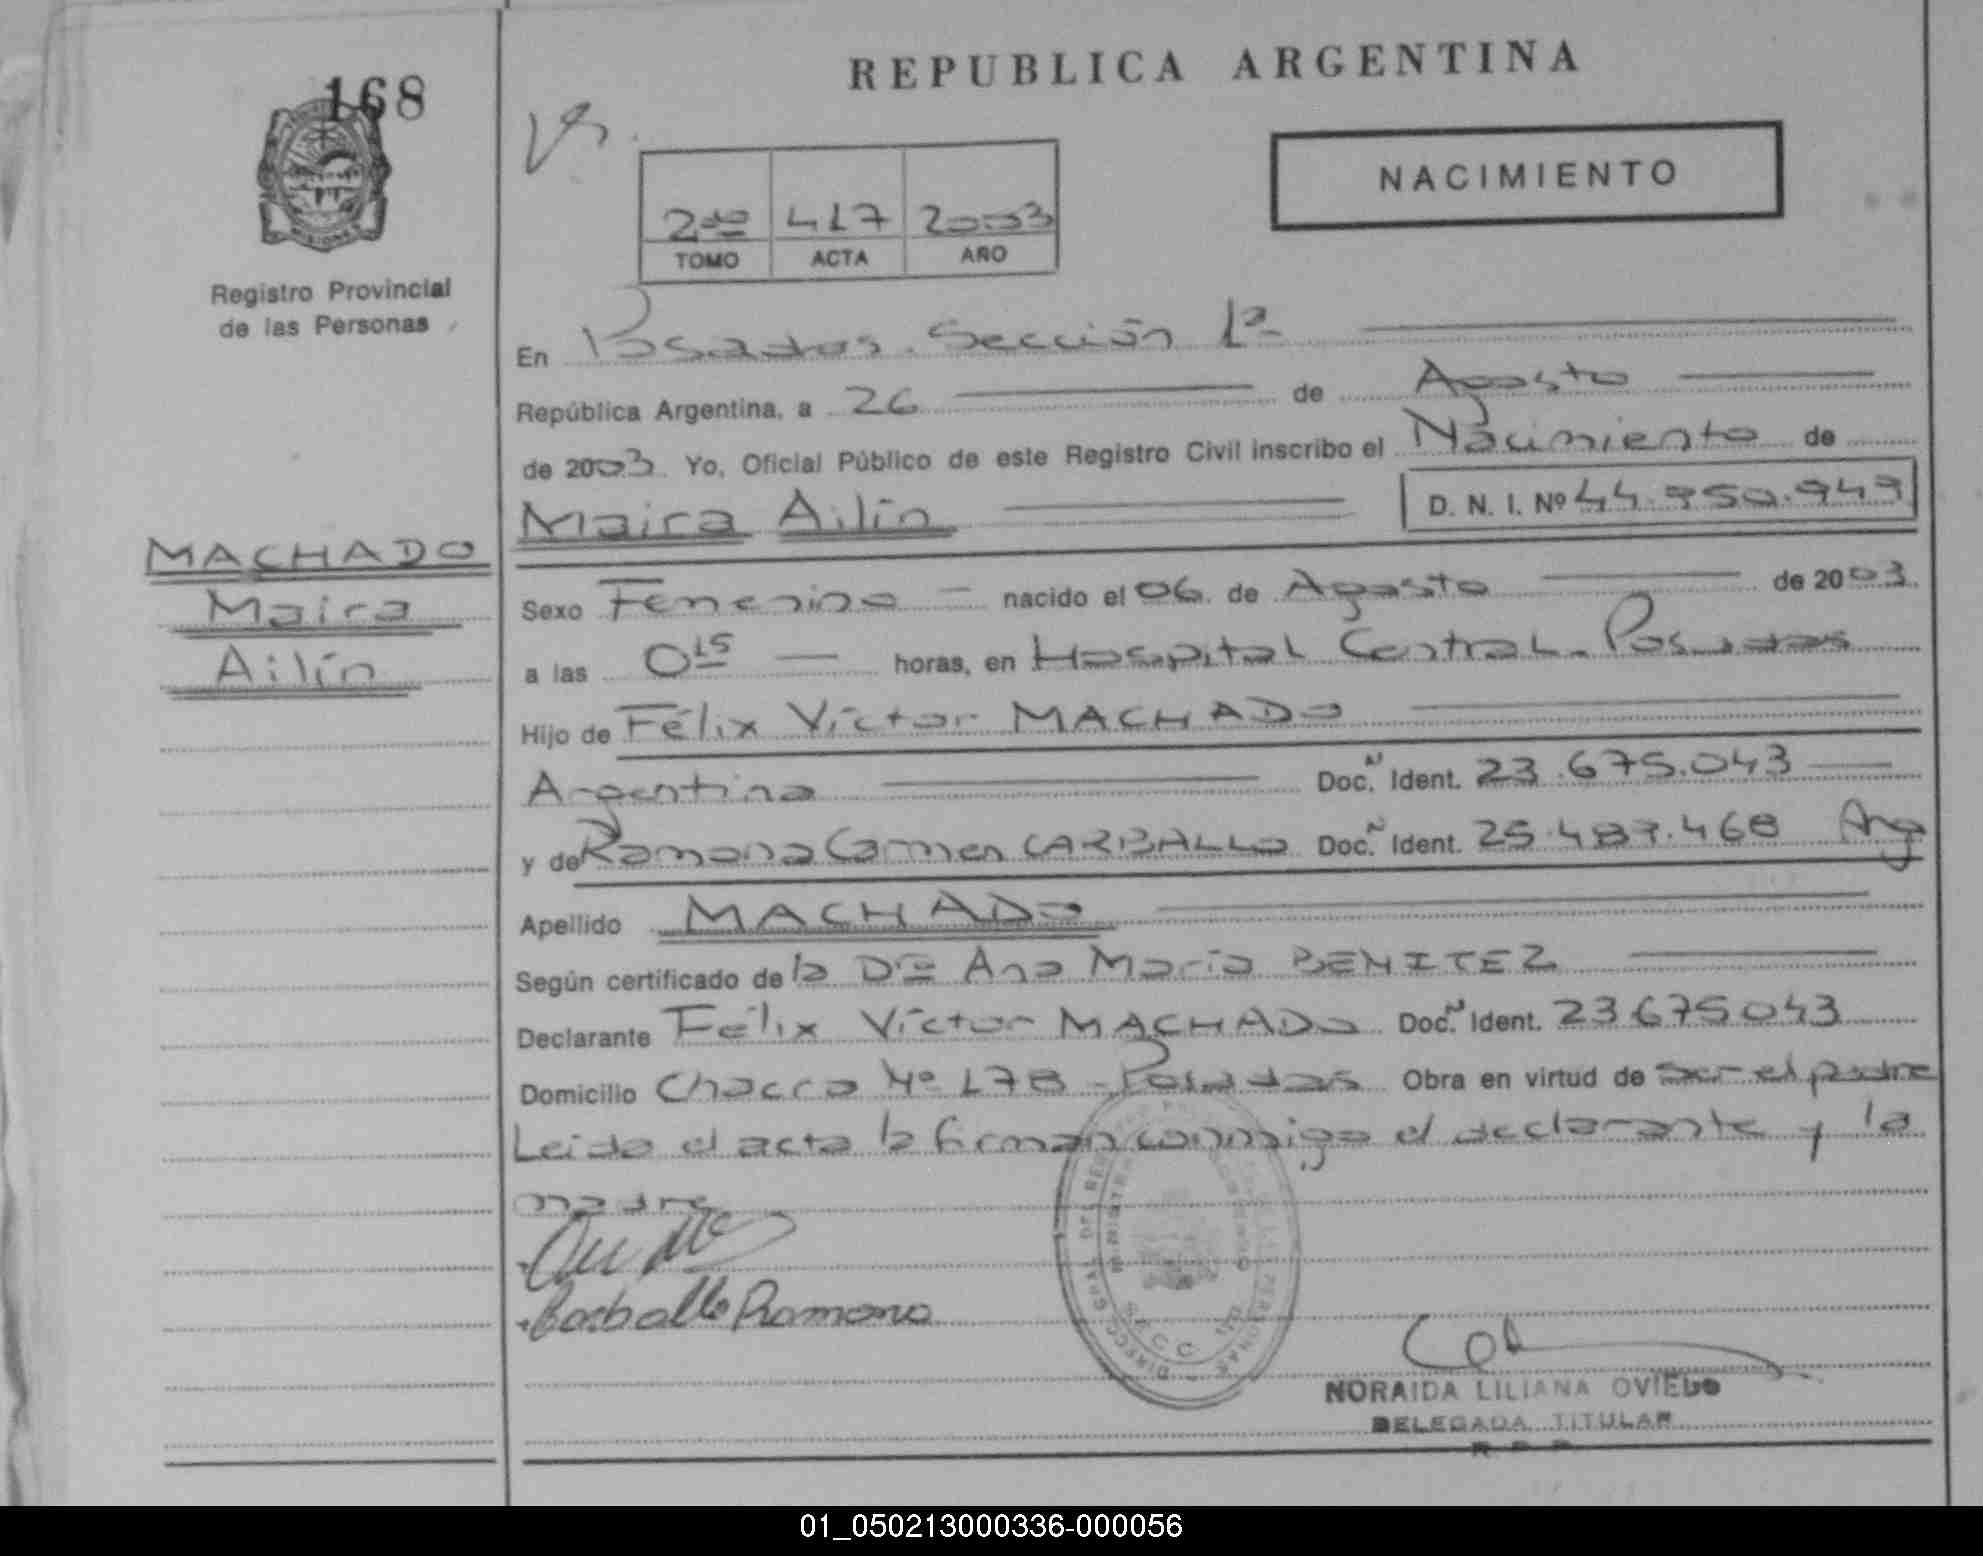 168
REPUBLICA ARGENTINA
NACIMIENTO
2do 417 2003
TOMO ACTA AÑO
MISIONES
Registro Provincial
de las Personas
En Posadas. Sección 1ª
República Argentina, a 26 de Agosto
de 2003 Yo, Oficial Público de este Registro Civil inscribo el Nacimiento de
Maira Ailín D. N. I. Nº 44.950.949
MACHADO
Maira
Ailín
Sexo Femenino nacido el 06 de Agosto de 2003
a las 0 15 horas, en Hospital Central. Posadas
Hijo de Félix Víctor MACHADO
Argentina Doc. N Ident. 23.675.043
y de Ramona Carmen CARBALLO Doc. N Ident. 25.487.468 Arg
Apellido MACHADO
Según certificado de la Dra Ana María BENITEZ
Declarante Félix Víctor MACHADO Doc. N Ident. 23675043
Domicilio Chacra Nº 178 - Posadas Obra en virtud de ser el padre
Leida el acta la firman conmigo el declarante y la
madre
Carballo Ramona
NORAIDA LILIANA OVIEDO
DELEGADA TITULAR
R. P. P.
01_050213000336-000056